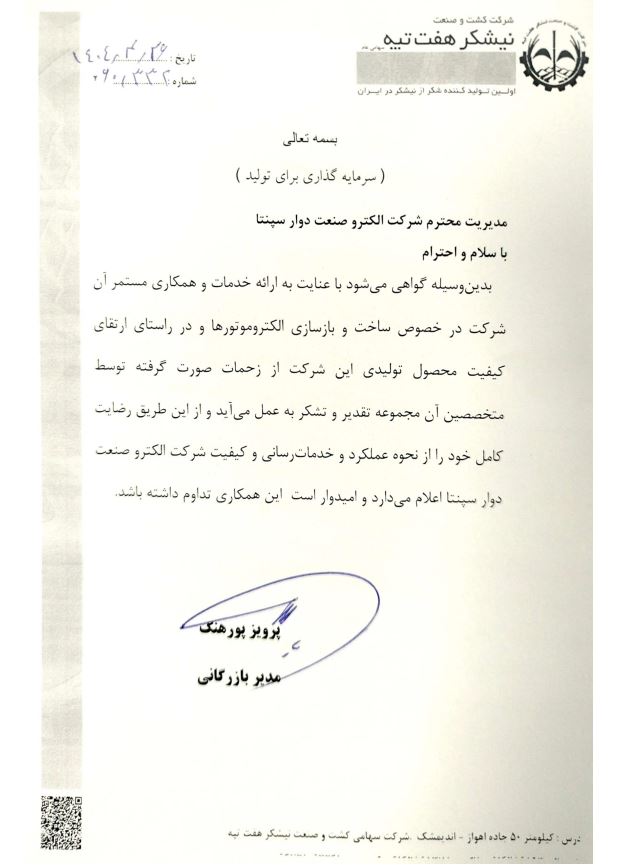 شرکت کشت و صنعت
نیشکر هفت تپه
سهامی عام
اولین تولید کننده شکر از نیشکر در ایران
تاریخ : ۱۴۰۴/۴/۲۶
شماره : ۲۹۰/۳۳۲
بسمه تعالی
( سرمایه گذاری برای تولید )
مدیریت محترم شرکت الکترو صنعت دوار سپنتا
با سلام و احترام
بدین‌وسیله گواهی می‌شود با عنایت به ارائه خدمات و همکاری مستمر آن
شرکت در خصوص ساخت و بازسازی الکتروموتورها و در راستای ارتقای
کیفیت محصول تولیدی این شرکت از زحمات صورت گرفته توسط
متخصصین آن مجموعه تقدیر و تشکر به عمل می‌آید و از این طریق رضایت
کامل خود را از نحوه عملکرد و خدمات‌رسانی و کیفیت شرکت الکترو صنعت
دوار سپنتا اعلام می‌دارد و امیدوار است این همکاری تداوم داشته باشد.
پرویز پورهنک
مدیر بازرگانی
درس : کیلومتر ۵۰ جاده اهواز - اندیمشک .شرکت سهامی کشت و صنعت نیشکر هفت تپه